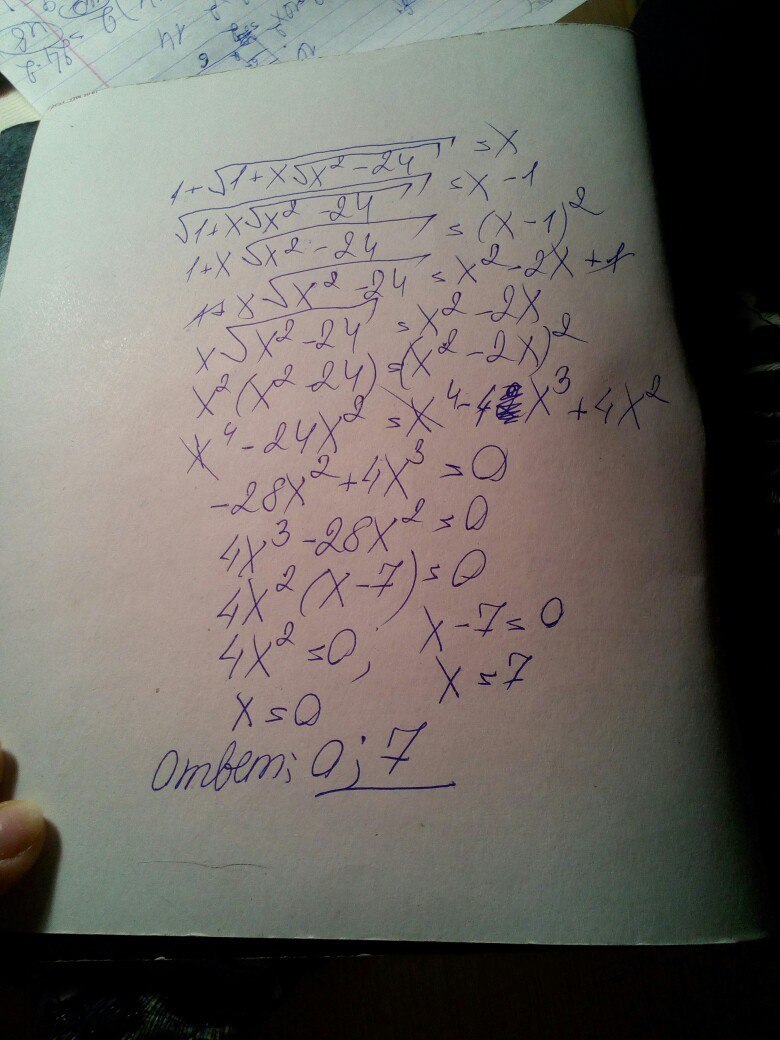 1+√(1+x√(x²-24)) = x
√(1+x√(x²-24)) = x-1
1+x√(x²-24) = (x-1)²
1+x√(x²-24) = x²-2x+1
x√(x²-24) = x²-2x
x²(x²-24) = (x²-2x)²
x⁴-24x² = x⁴-4x³+4x²
-28x²+4x³ = 0
4x³-28x² = 0
4x²(x-7) = 0
4x² = 0; x-7 = 0
x = 0 x = 7
Ответ: 0; 7